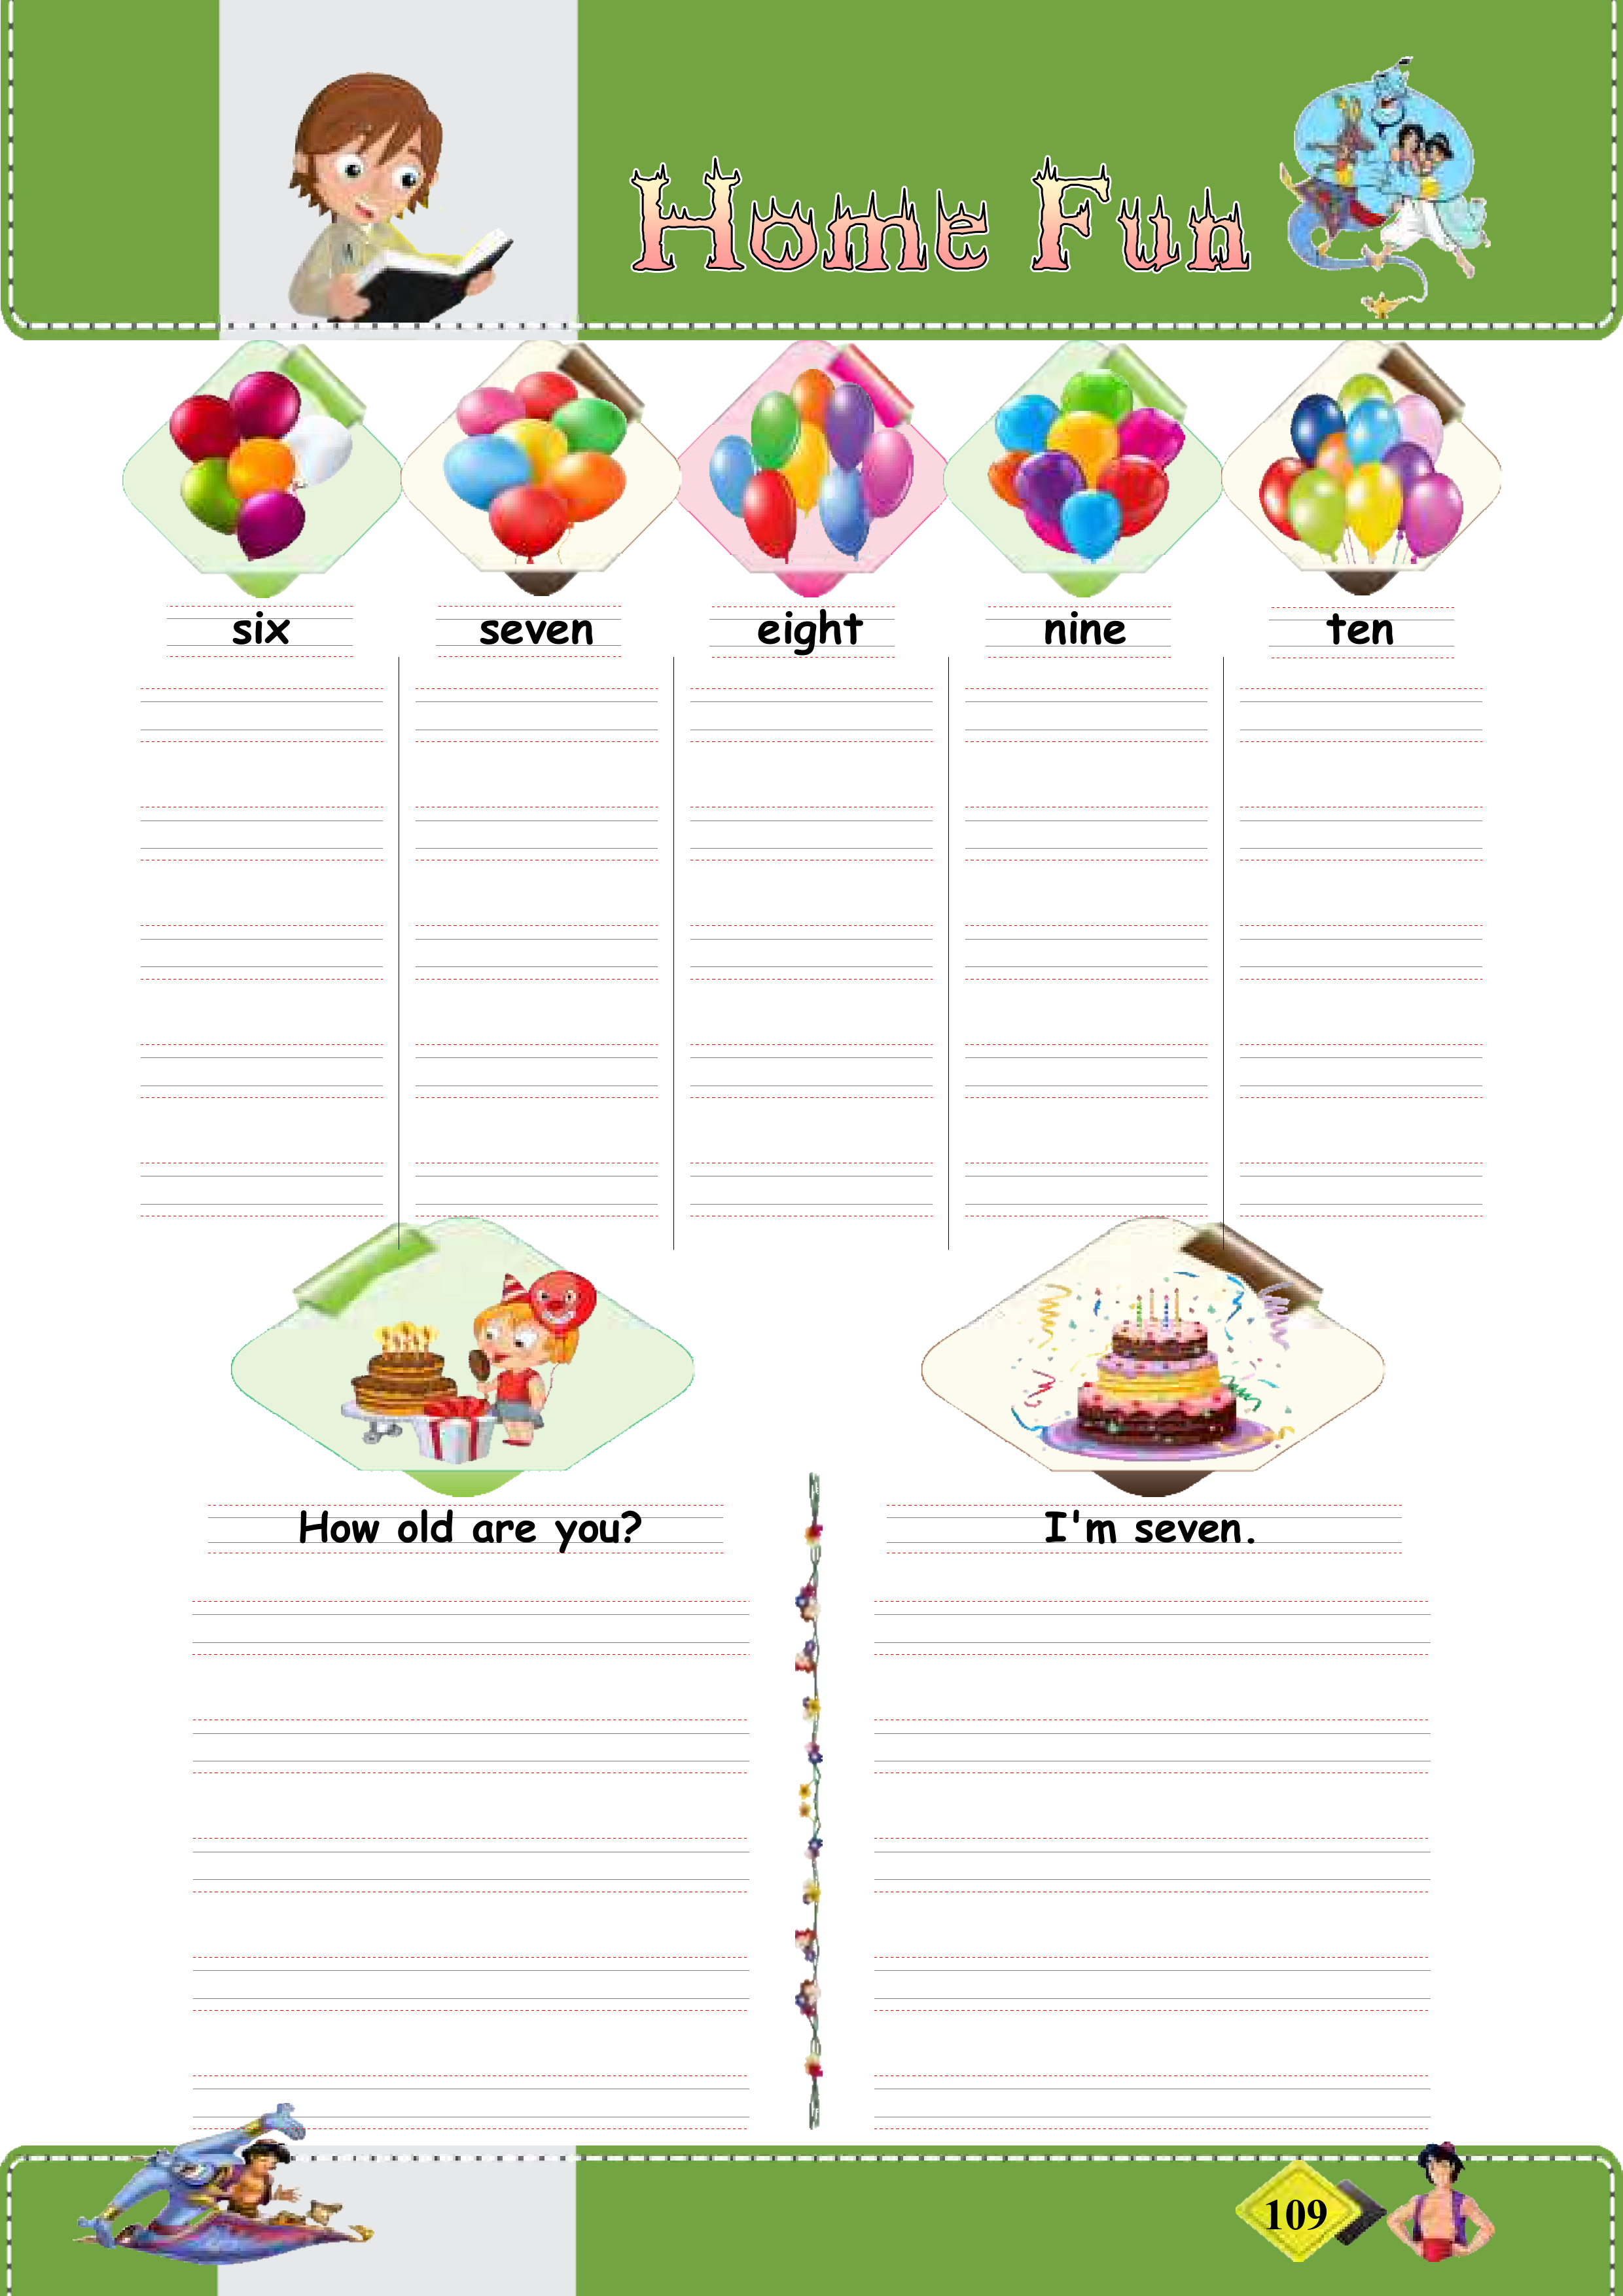 Home Fun
six seven eight nine ten
How old are you? I'm seven.
109